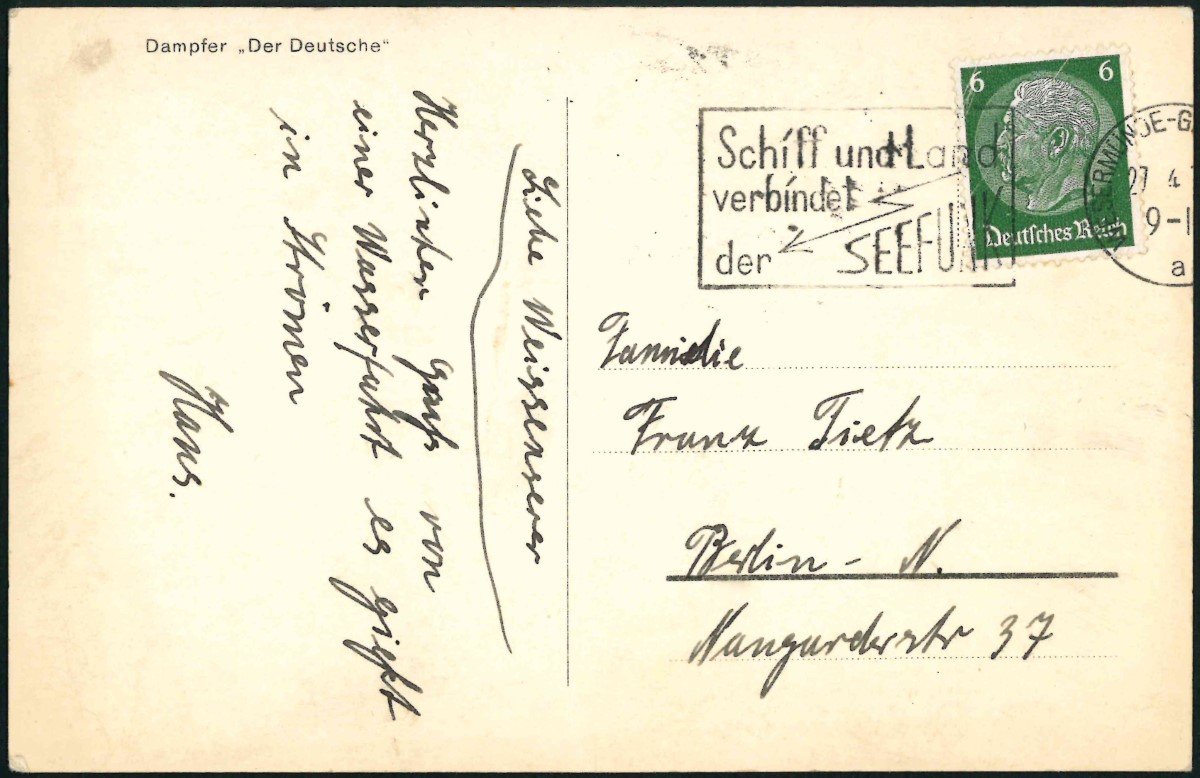 Dampfer „Der Deutsche“
Liebe Weissenseer
Herzlichen Gruß von
einer Wasserfahrt es giest
in Strömen
Hans.
6 6
Deutsches Reich
Schiff und Land
verbindet
der SEEFUNK
WESERMÜNDE-G
27 4
9-1
a
Familie
Franz Tietz
Berlin - N.
Naugarderstr 37